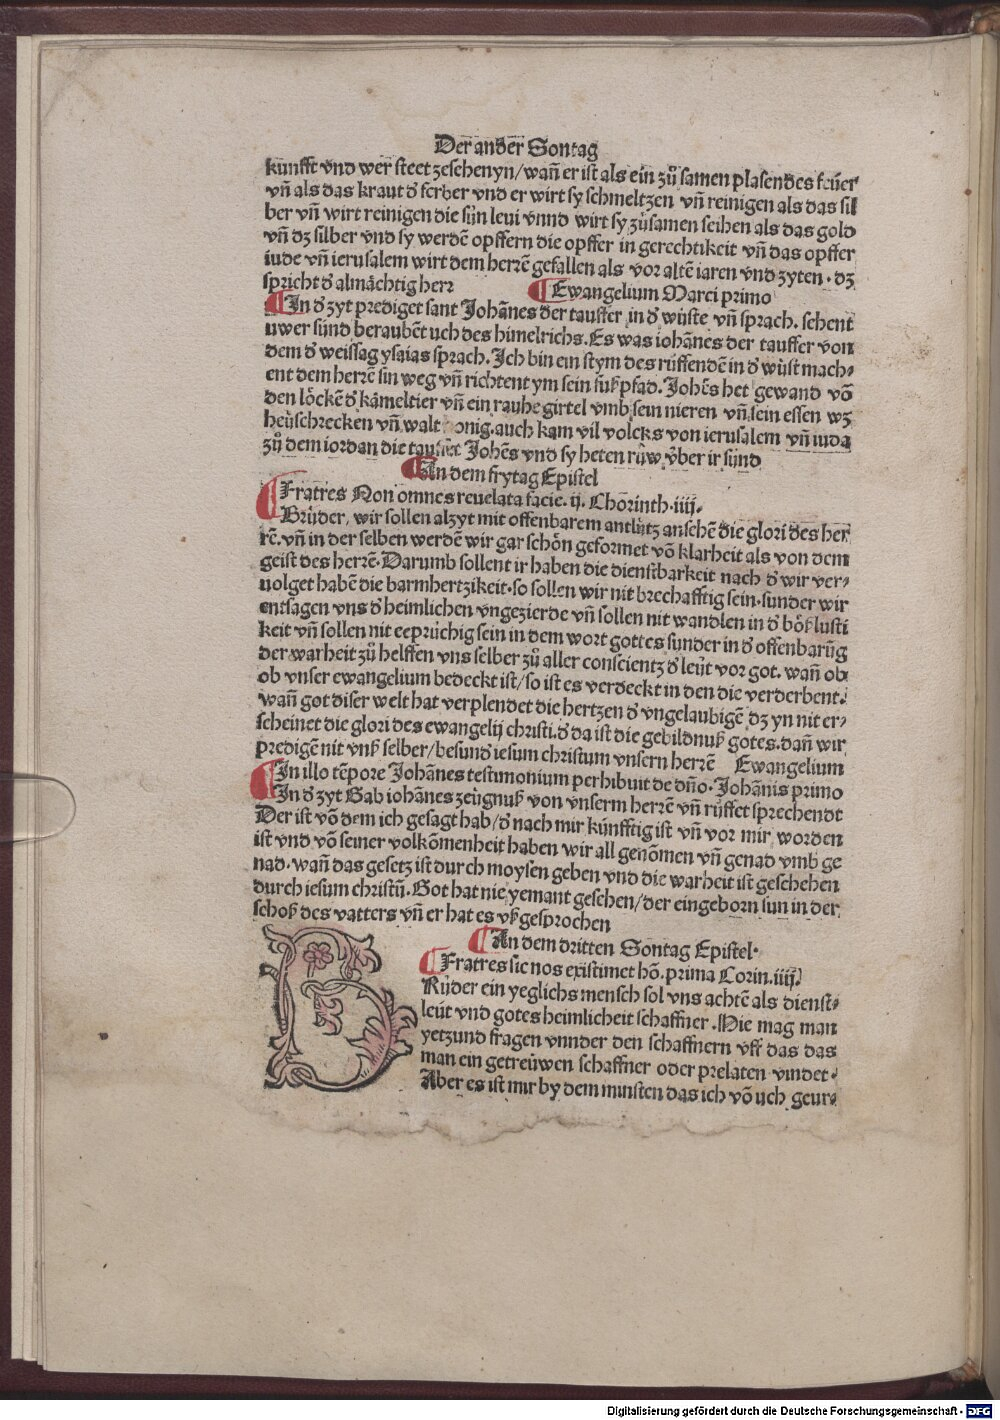 Der ander Sontag
kunfft vnd wer steet zesehenyn/wañ er ist als ein zů samen plasendes feüer
vñ als das kraut ď ferber vnd er wirt sy schmeltzen vñ reinigen als das sil
ber vñ wirt reinigen die sün leui vnnd wirt sy zůsamen seihen als das gold
vñ dz silber vnd sy werdē opffern die opffer in gerechtikeit vñ das opffer
iude vñ ierusalem wirt dem herrē gefallen als vor altē iaren vnd zyten . dz
spricht ď almächtig herr ¶ Ewangelium Marci primo
¶ In ď zyt prediget sant Johānes der tauffer in ď wüste vñ sprach. sehent
uwer sünd beraubēt uch des himelrichs. Es was iohānes der tauffer von
dem ď weissag ysaias sprach. Ich bin ein stym des rüffendē in ď wüst mach⸗
ent dem herrē sin weg vñ richtent ym sein fußpfad. Johēs het gewand vō
den löckē ď kämeltier vñ ein rauhe girtel vmb sein nieren vñ sein essen wz
heüschrecken vñ walt onig. auch kam vil volcks von ierusalem vñ iuda
zů dem iordan die tauffet Johēs vnd sy heten rüw über ir sünd
¶ An dem frytag Epistel
¶ Fratres Non omnes reuelata facie. ij. Chorinth. iiij.
Brüder, wir sollen alzyt mit offenbarem antlütz ansehē die glori des her
rē. vñ in der selben werdē wir gar schön geformet vō klarheit als von dem
geist des herrē. Darumb sollent ir haben die dienstbarkeit nach ď wir ver⸗
uolget habē die barmhertzikeit. so sollen wir nit brechafftig sein. sunder wir
entsagen vns ď heimlichen vngezierde vñ sollen nit wandlen in ď bößlusti
keit vñ sollen nit eeprüchig sein in dem wort gottes sunder in ď offenbarūg
der warheit zů helffen vns selber zů aller conscientz ď leüt vor got. wañ ob
ob vnser ewangelium bedeckt ist/so ist es verdeckt in den die verderbent.
wañ got diser welt hat verplendet die hertzen ď vngelaubigē dz yn nit er⸗
scheinet die glori des ewangelij christi. ď da ist die gebildnuß gotes. dañ wir
predigē nit vnß selber/besunď iesum christum vnsern herrē Ewangelium
¶ In illo tēpore Johānes testimonium perhibuit de dño. Johānis primo
In ď zyt Gab iohānes zeügnuß von vnserm herrē vñ rüffet sprechendt
Der ist vō dem ich gesagt hab/ď nach mir künfftig ist vñ vor mir worden
ist vnd vō seiner volkōmenheit haben wir all genōmen vñ genad vmb ge
nad. wañ das gesetz ist durch moysen geben vnd die warheit ist geschehen
durch iesum christū. Got hat nie yemant gesehen/der eingeborn sun in der
schoß des vatters vñ er hat es vßgesprochen
¶ An dem dritten Sontag Epistel.
¶ Fratres sic nos existimet hō. prima Corin. iiij.
BRüder ein yeglichs mensch sol vns achtē als dienst⸗
leüt vnd gotes heimlicheit schaffner. Nie mag man
yetzund fragen vnnder den schaffnern vff das das
man ein getreüwen schaffner oder prelaten vindet.
Aber es ist mir by dem minsten das ich vō uch geur⸗
Digitalisierung gefördert durch die Deutsche Forschungsgemeinschaft - DFG